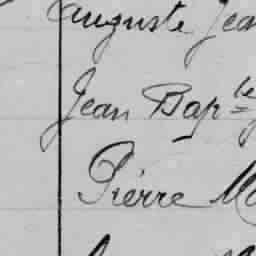 Auguste Jean
Jean Bapte
Pierre Ma